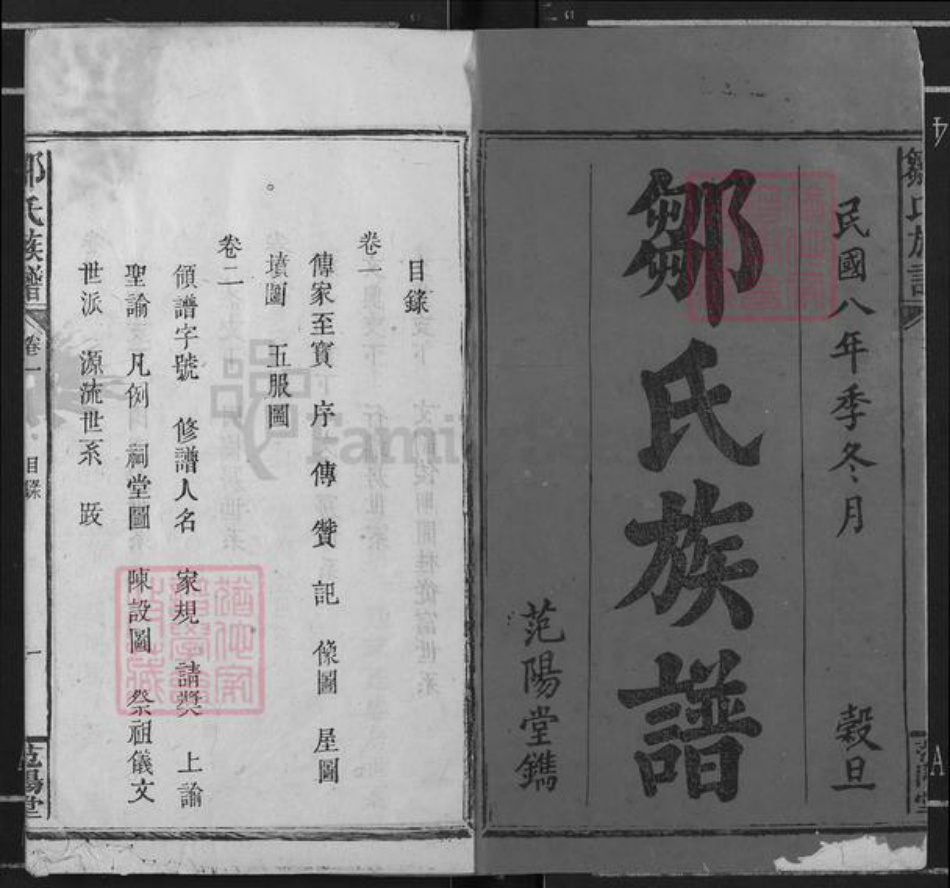 民國八年季冬月 穀旦
鄒氏族譜
范陽堂鐫
目錄
卷一
傳家至寳 序 傳 贊 記 像圖 屋圖
墳圖 五服圖
卷二
領譜字號 修譜人名 家規 請奬 上諭
聖諭 凡例 祠堂圖 陳設圖 祭祖儀文
世派 源流世系 跋
鄒氏族譜 卷一 目錄 一 范陽堂